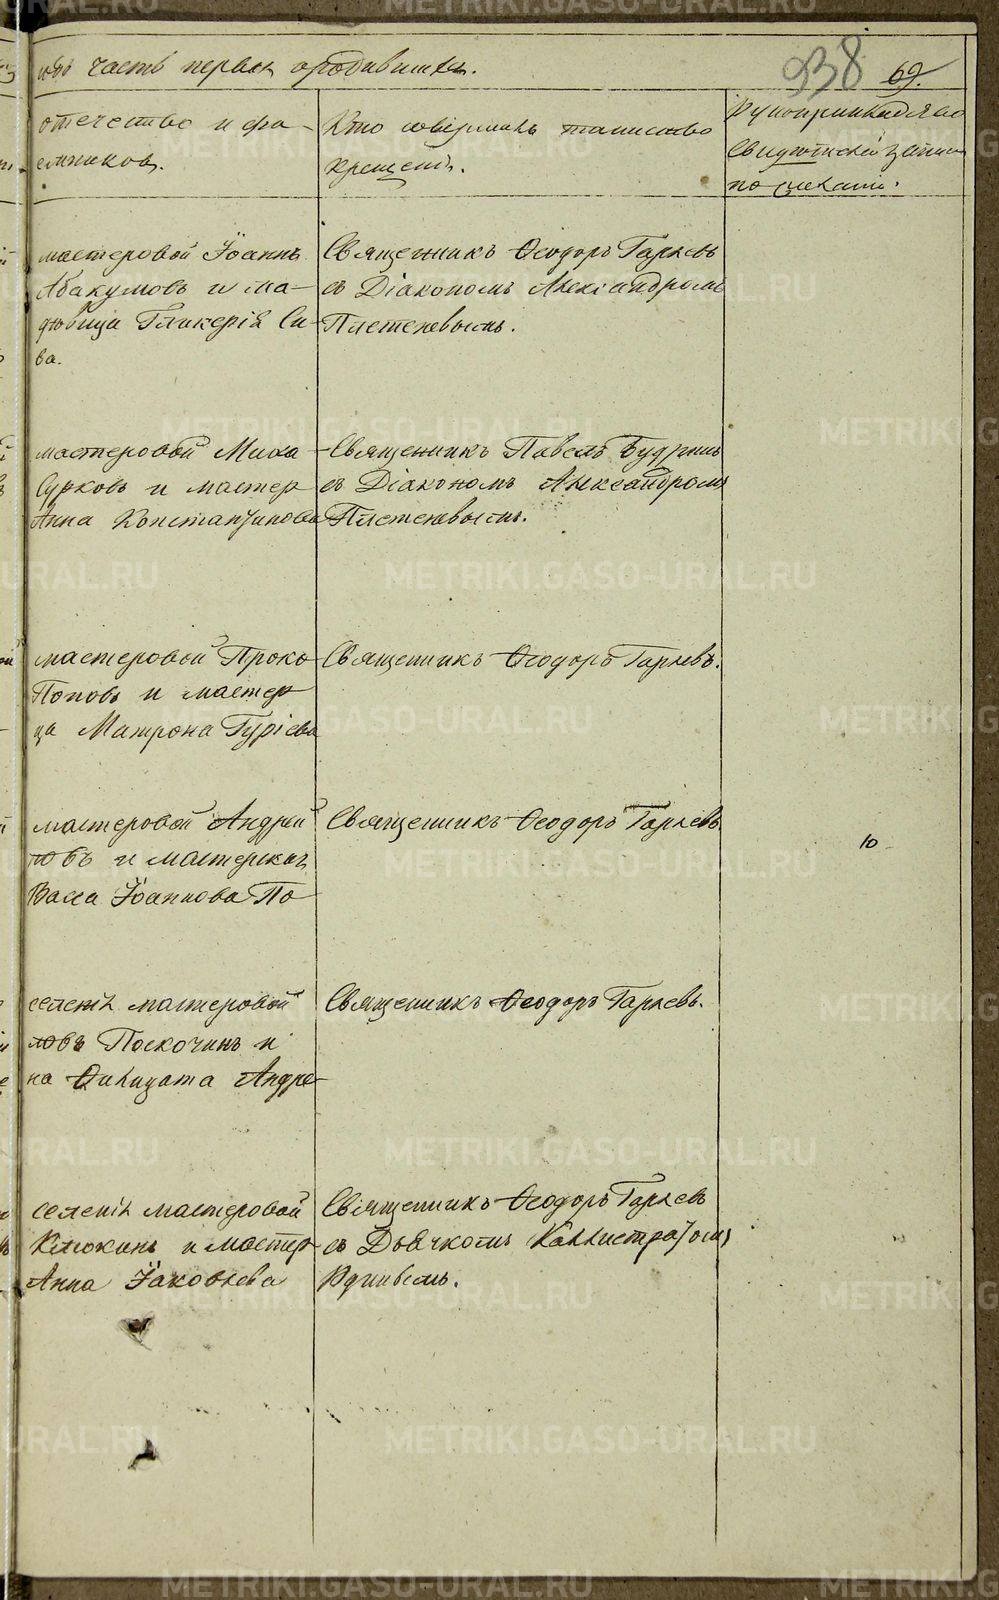 часть первая о родившихся.
938
69.
отечество и фа-
емников.
Кто совершилъ таинство
крещенія.
Рукоприкладство
свидѣтелей записи
по желанію.
мастеровой Іоаннъ
Абакумовъ и ма-
дѣвица Гликерія Са-
ва.
Священникъ Ѳеодоръ Гаряевъ
съ Діакономъ Александромъ
Плетеневымъ.
мастеровой Миха
Сурковъ и мастер
Анна Константинова
Священникъ Павелъ Будринъ
съ Діакономъ Александромъ
Плетеневымъ.
мастеровой Проко
Поповъ и мастер
ца Матрона Гуріева
Священникъ Ѳеодоръ Гаряевъ.
мастеровой Андрей
ловъ и мастерская
Васса Іоаннова По
Священникъ Ѳеодоръ Гаряевъ
10
селенія мастеровой
ловъ Поскочинъ и
на Ѳилицата Андре-
Священникъ Ѳеодоръ Гаряевъ.
селенія мастеровой
Клюкинъ и мастер
Анна Іаковлева
Священникъ Ѳеодоръ Гаряевъ
съ Дьячкомъ Каллистратомъ
METRIKI.GASO-URAL.RU